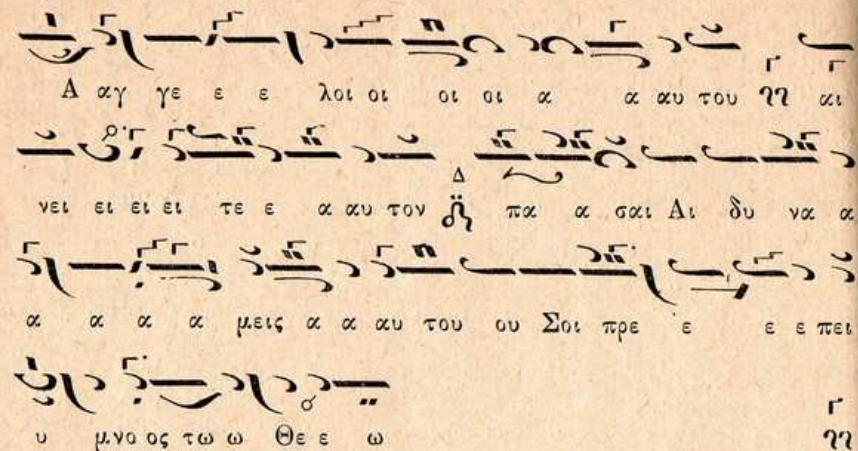 Α αγ γε ε ε λοι οι οι οι α α αυ του αι
νει ει ει ει τε ε α αυ τον Δ πα α σαι Αι δυ να α
α α α α μεις α α αυ του ου Σοι πρε ε ε ε πει
υ μνο ος τω ω Θε ε ω